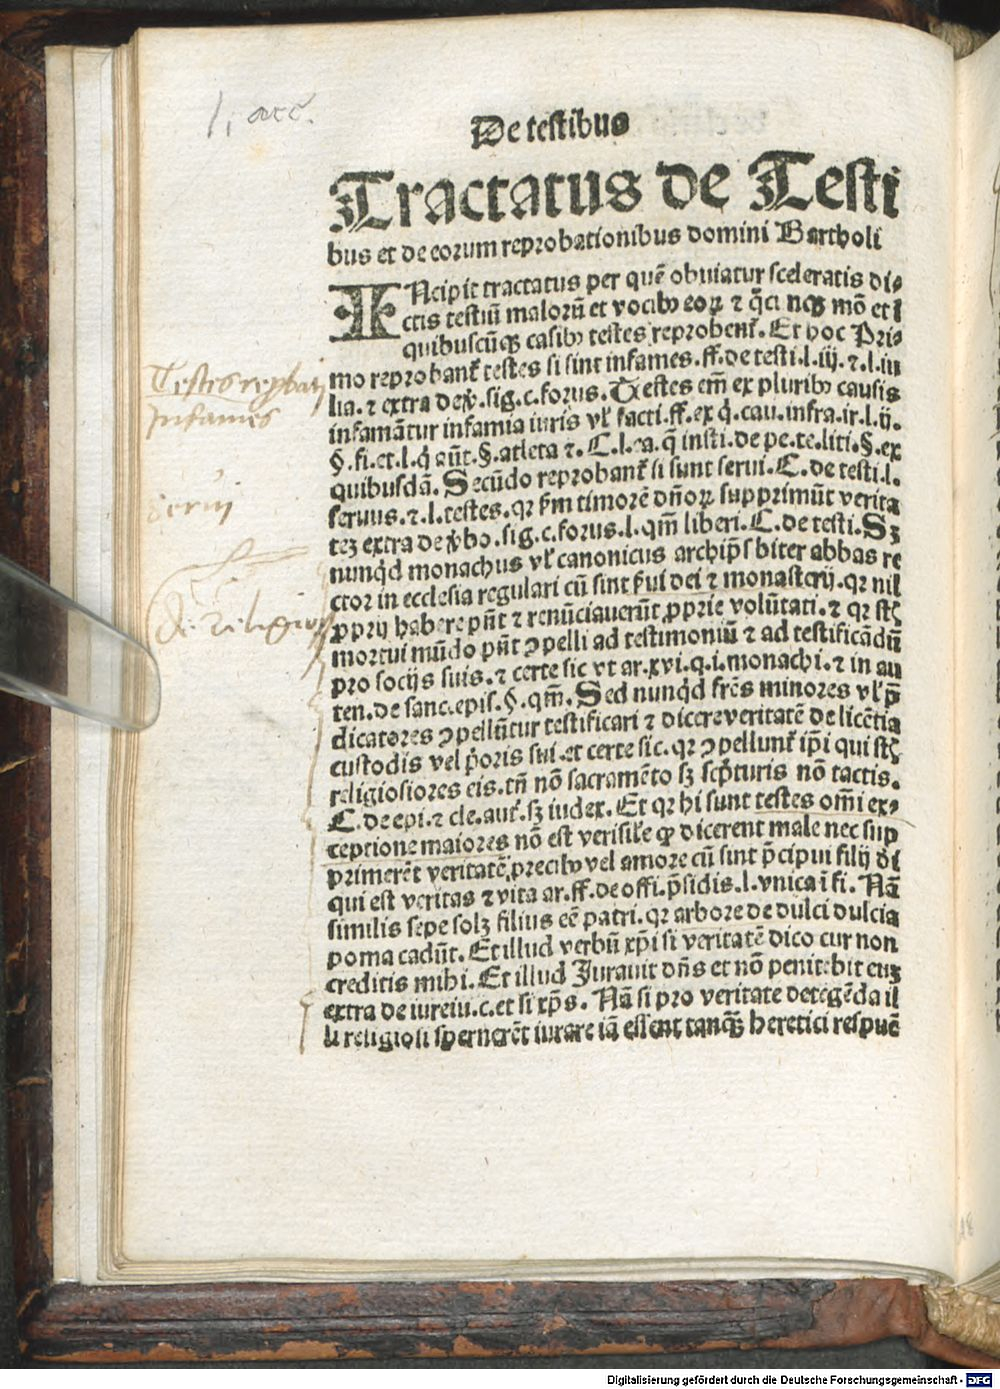 1, acc.
De testibus
Tractatus de Testi
bus et de eorum reprobationibus domini Bartholi
INcipit tractatus per quē obuiatur sceleratis di-
ctis testiū malorū et vocibꝰ eoꝝ ⁊ q̄ci mō et ī
quibuscūqꝫ casibꝰ testes reprobent̄. Et hoc Pri-
mo reprobant̄ testes si sint infames. ff. de testi. l. iij. ⁊. l. iu
lia. ⁊ extra de sig. c. forus. Testes em̄ ex pluribꝰ causis
infamātur infamia iuris vl̓ facti. ff. ex q̄. cau. infra. ir. l. ij.
§. fi. et. l. q̄ aūt. §. atleta ⁊. C. l. ea. q̄ insti. de pe. te. liti. §. ex
quibusdā. Secūdo reprobant̄ si sunt serui. C. de testi. l.
seruus. ⁊. l. testes. qꝛ timorē dn̄oꝝ supprimūt verita
teꝫ extra de ꝟbo. sig. c. forus. l. qm̄ liberi. C. de testi. Sꝫ
nunq̄d monachus vl̓ canonicus archip̄sbiter abbas re
ctor in ecclesia regulari cū sint ẜui dei ⁊ monasterij. qꝛ nil
ꝓprij habere pn̄t ⁊ renūciauerūt ꝓprie volūtati. ⁊ qꝛ st̄
mortui mūdo pn̄t ꝯpelli ad testimoniū ⁊ ad testificādū
pro socijs suis. ⁊ certe sic vt ar. xvi. q. i. monachi. ⁊ in au
ten. de sanc. epis. §. qm̄. Sed nunq̄d fr̄es minores vl̓ p̄
dicatores ꝯpellūtur testificari ⁊ dicere veritatē de licētia
custodis vel p̄oris sui. et certe sic. qꝛ ꝯpellunt̄ ip̄i qui st̄
religiosiores eis. tn̄ nō sacramēto sꝫ scpturis nō tactis.
C. de epi. ⁊ cle. aut. sꝫ iudex. Et qꝛ hi sunt testes om̄i ex-
ceptione maiores nō est verisile ꝙ dicerent male nec sup
primerēt veritatē precibꝰ vel amore cū sint p̄cipui filij di
qui est veritas ⁊ vita ar. ff. de offi. p̄sidis. l. vnica ī fi. Nā
similis sepe solꝫ filius eē patri. qꝛ arbore de dulci dulcia
poma cadūt. Et illud verbū xp̄i si veritatē dico cur non
creditis mihi. Et illud Jurauit dn̄s et nō penitebit euꝫ
extra de iureiu. c. et si xp̄s. Nā si pro veritate detegēda il
li religiosi spernerēt iurare iā essent tanqꝫ heretici respuē
Testes repbatj
Infames
Serui
de Religiosis
18
Digitalisierung gefördert durch die Deutsche Forschungsgemeinschaft - DFG